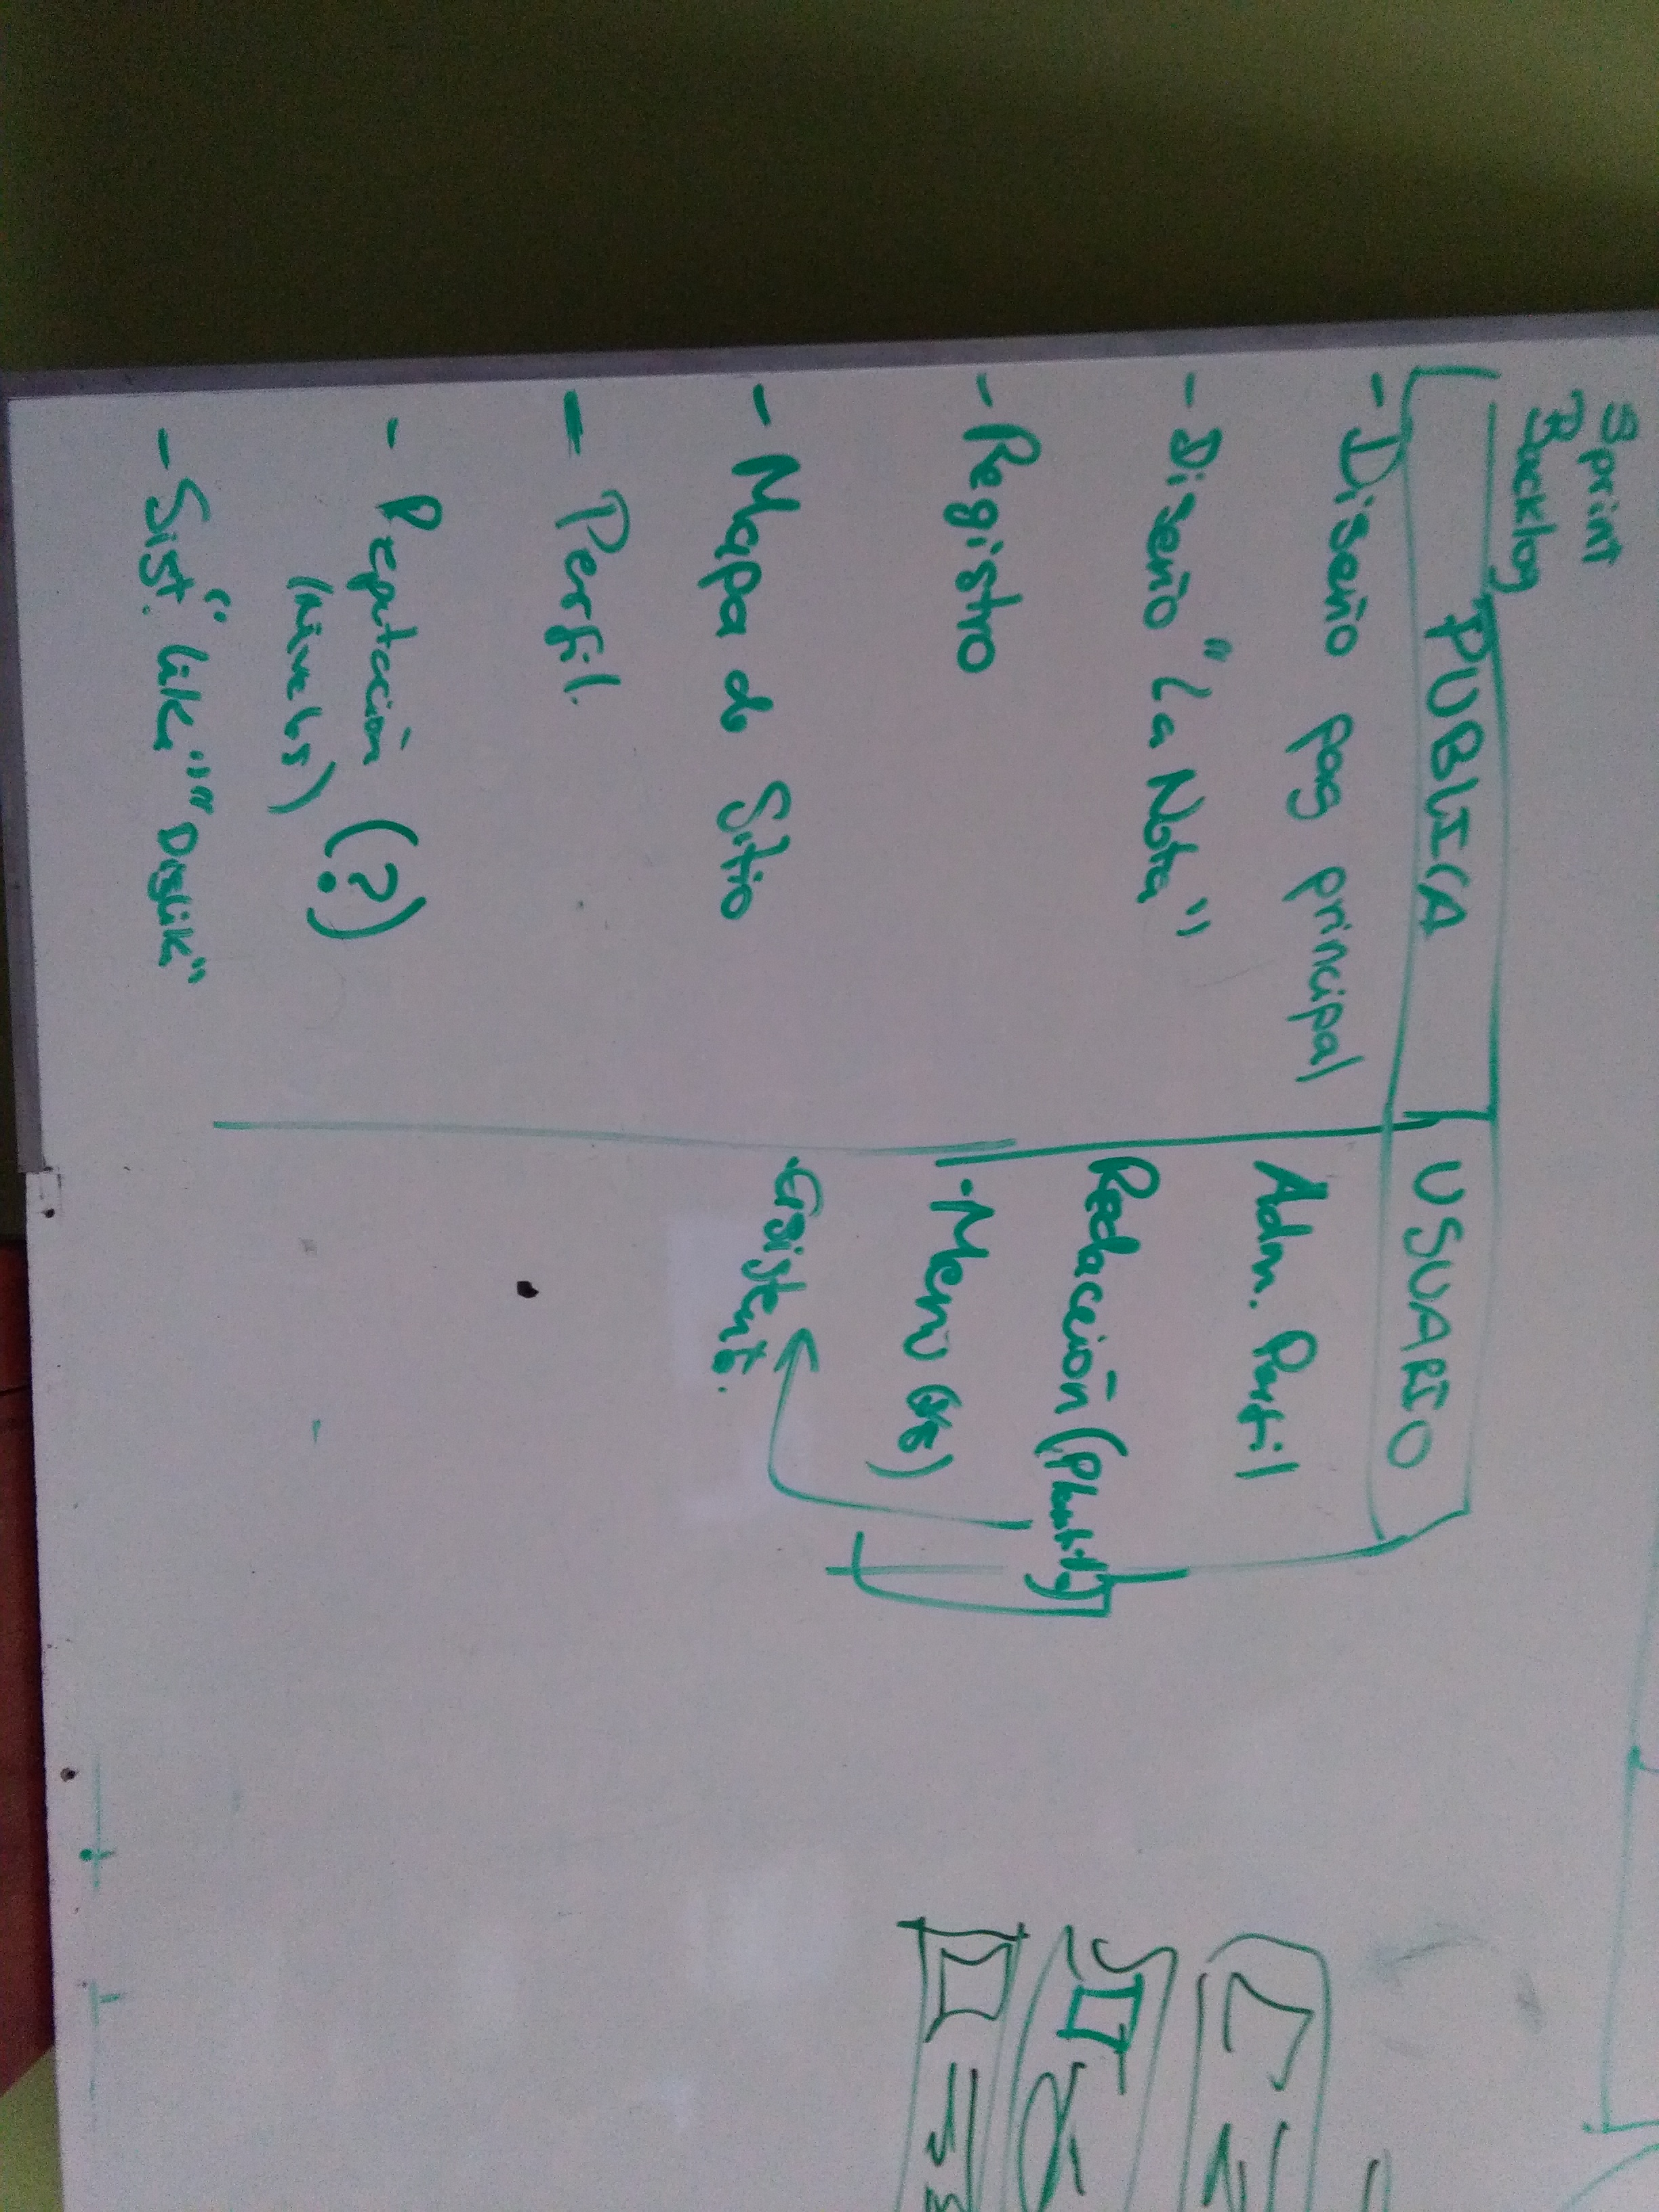 Sprint
Backlog
PUBLICA
- Diseño pag principal
- Diseño "La Nota"
- Registro
- Mapa de Sitio
- Perfil.
- Reputación (?)
(niveles)
- Sist. "Like" "Dislik"
USUARIO
Adm. Perfil
Redacción (
. Menu